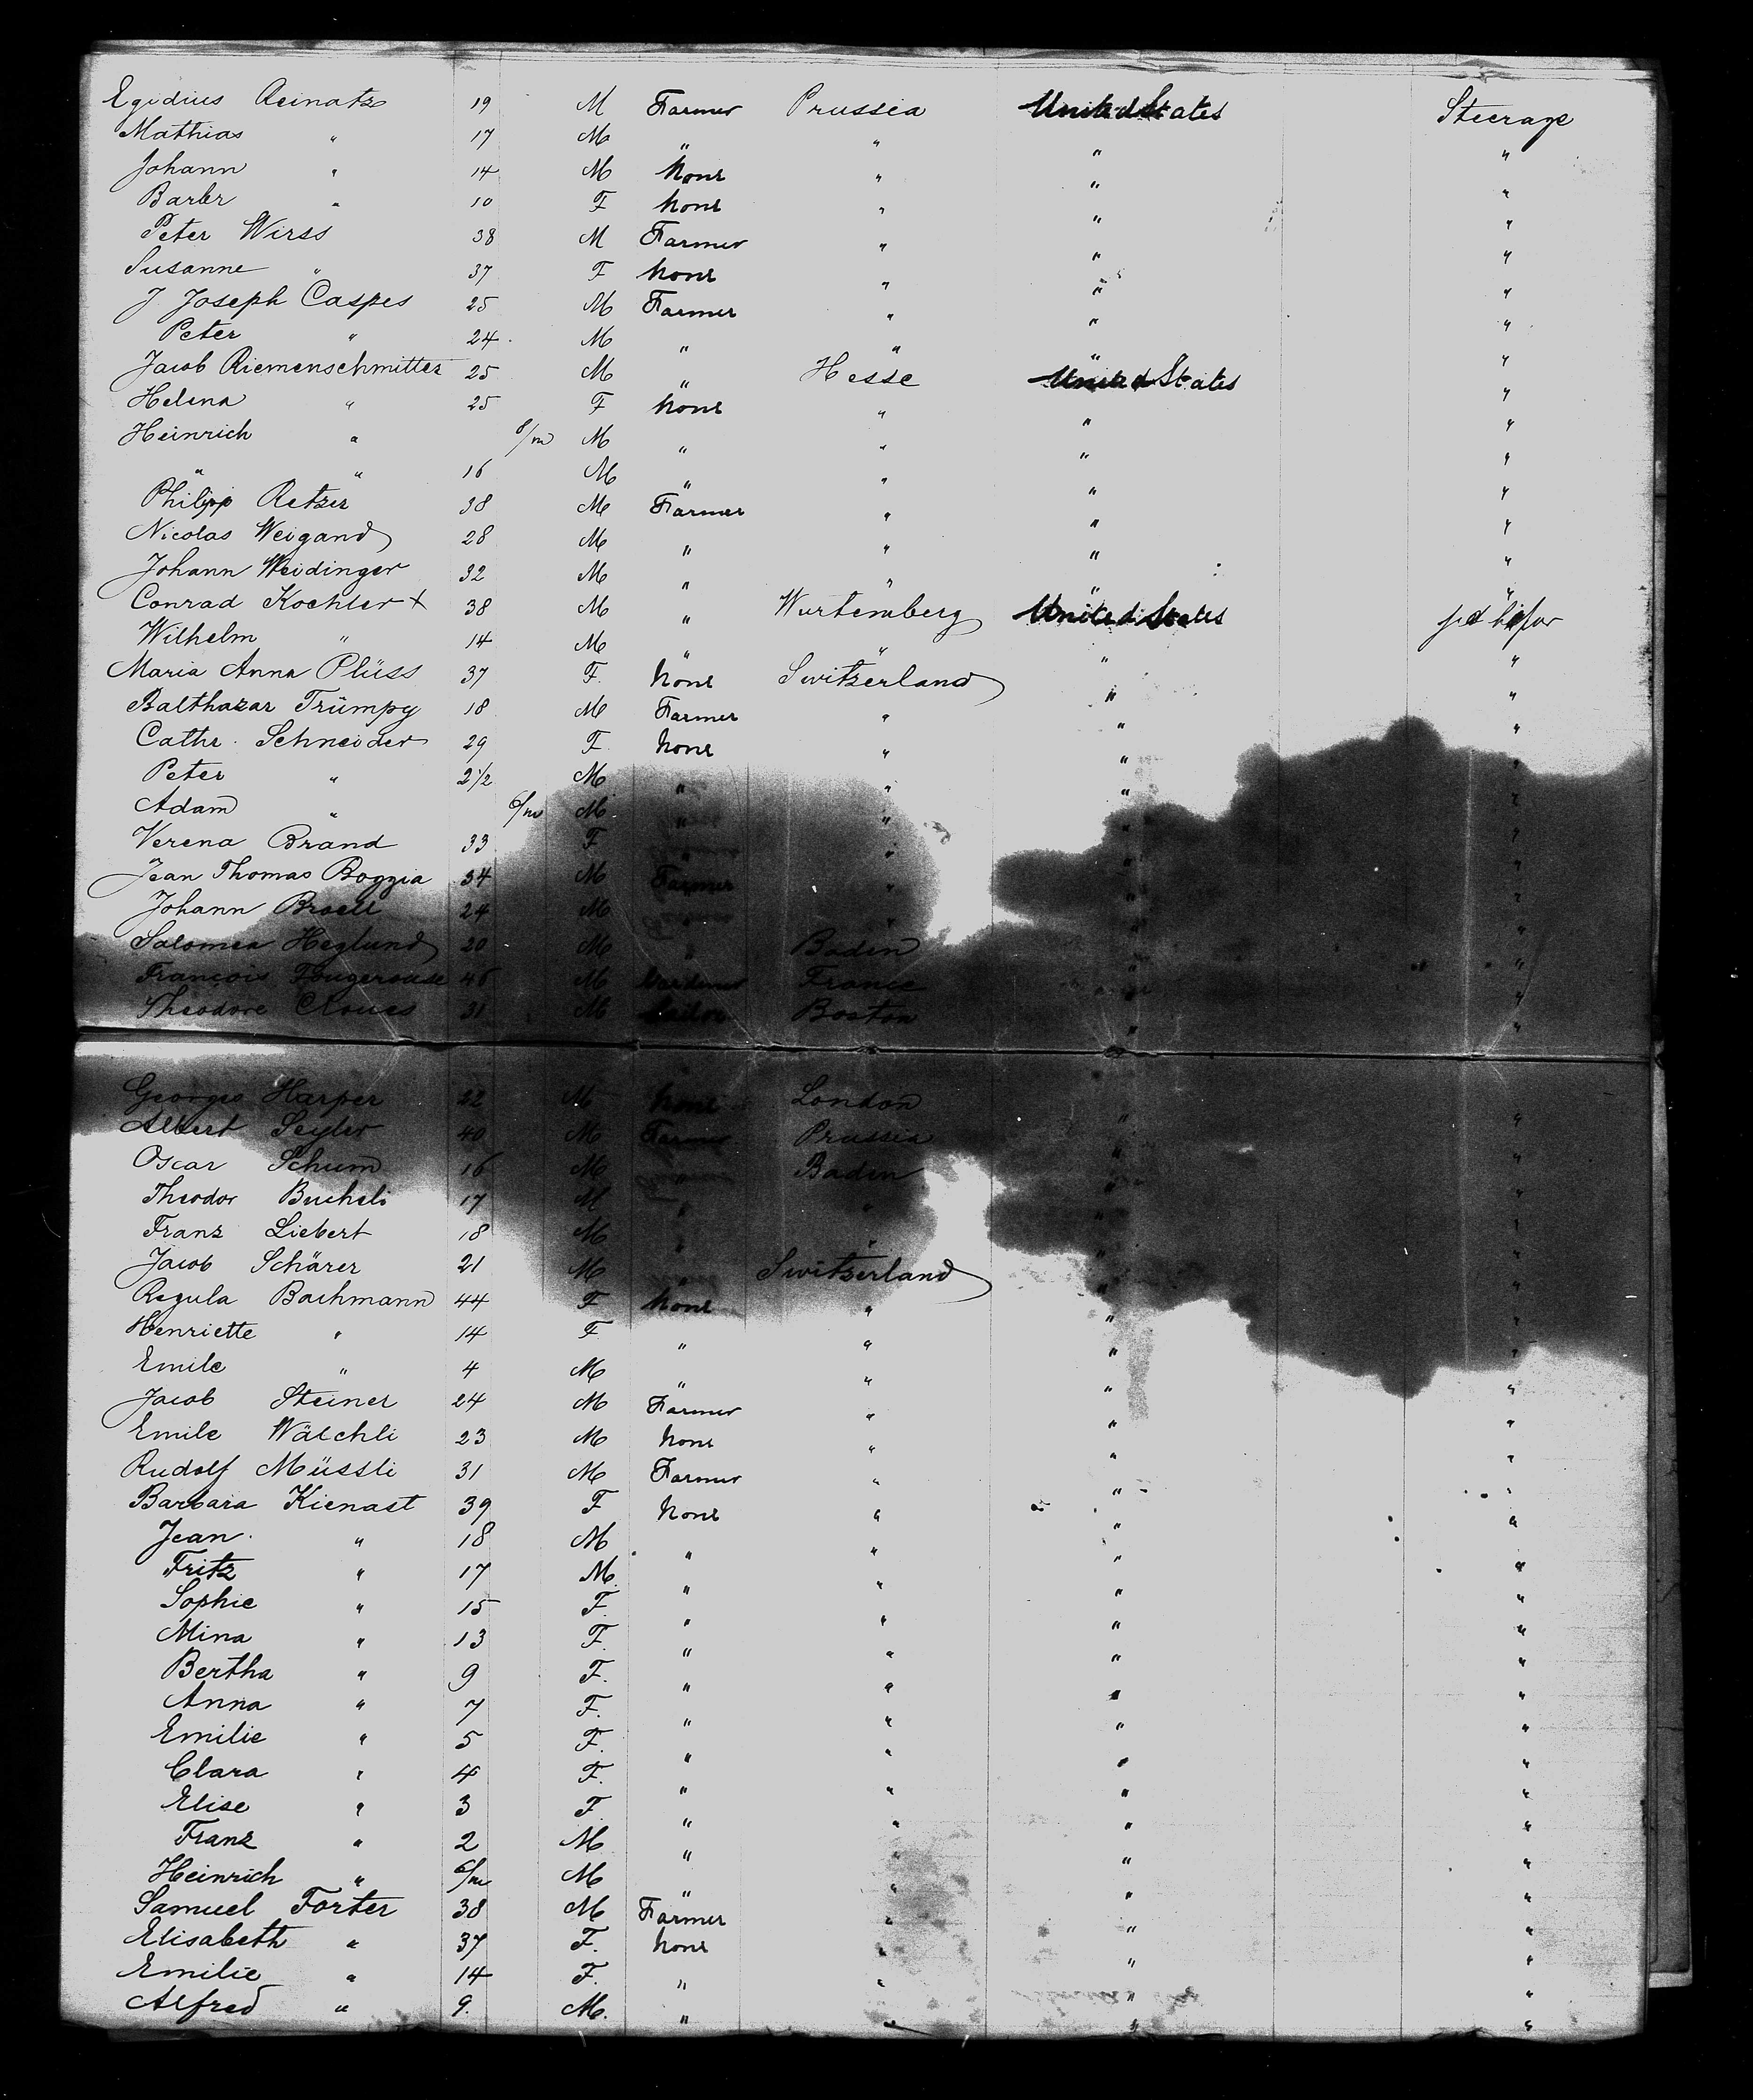 Egidius Reinatz 19 M Farmer Prussia United States Steerage
Mathias " 17 M " " " "
Johann " 14 M None " " "
Barbr " 10 F None " " "
Peter Wirss 38 M Farmer " " "
Susanne " 37 F None " " "
J. Joseph Caspes 25 M Farmer " " "
Peter " 24 M " " " "
Jacob Riemenschmitter 25 M " Hesse United States "
Helena " 25 F None " " "
Heinrich " 8/m M " " " "
" " 16 M " " " "
Philipp Retzer 38 M Farmer " " "
Nicolas Weigand 28 M " " " "
Johann Weidinger 32 M " " " "
Conrad Kochler + 38 M " Wurtemberg United States
Wilhelm " 14 M " " " "
Maria Anna Plüss 37 F. None Switzerland " "
Balthazar Trümpy 18 M Farmer " " "
Cathr. Schneider 29 F. None " " "
Peter " 2 1/2 M " " " "
Adam " 6/m M " " " "
Verena Brand 33 F " " " "
Jean Thomas Boggia 34 M Farmer " " "
Johann Broell 24 M " " "
Salomea Heglund 20 M " Baden " "
François Fougerouse 46 M France " "
Theodore Cloues 31 M Boston " "
Georges Harper 22 M None London " "
Albert Seyler 40 M Farmer Prussia " "
Oscar Schum 16 M " Baden " "
Theodor Bucheli 17 M " " " "
Franz Liebert 18 M " " " "
Jacob Schärer 21 M " Switzerland " "
Regula Bachmann 44 F None " " "
Henriette " 14 F " " " "
Emile " 4 M " " " "
Jacob Steiner 24 M Farmer " " "
Emile Wälchli 23 M None " " "
Rudolf Müssli 31 M Farmer " " "
Barbara Kienast 39 F None " " "
Jean " 18 M " " " "
Fritz " 17 M. " " " "
Sophie " 15 F. " " " "
Mina " 13 F. " " " "
Bertha " 9 F. " " " "
Anna " 7 F. " " " "
Emilie " 5 F. " " " "
Clara " 4 F. " " " "
Elise " 3 F " " " "
Franz " 2 M " " " "
Heinrich " 6/m M " " " "
Samuel Forter 38 M Farmer " " "
Elisabeth " 37 F. None " " "
Emilie " 14 F. " " " "
Alfred " 9. M. " " " "